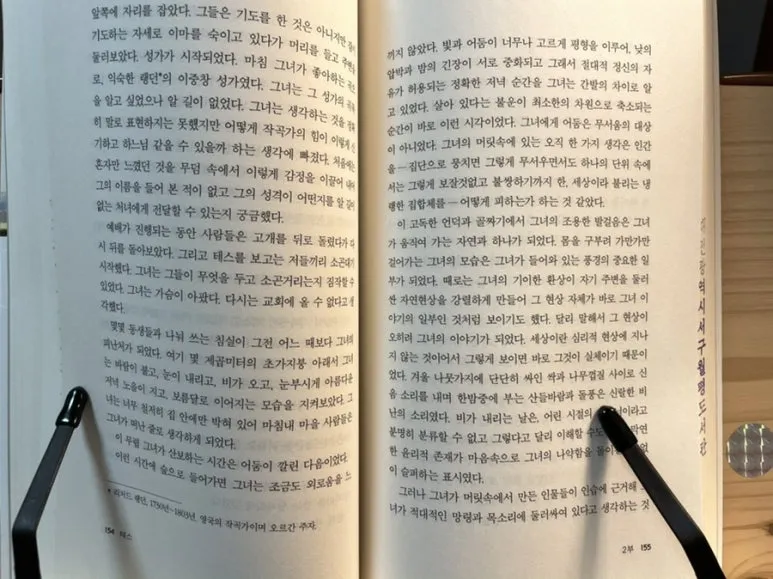 앞쪽에 자리를 잡았다. 그들은 기도를 한 것은 아니지만
기도하는 자세로 이마를 숙이고 있다가 머리를 들고
둘러보았다. 성가가 시작되었다. 마침 그녀가 좋아하는
로, 익숙한 랭던*의 이중창 성가였다. 그녀는 그 성가의
을 알고 싶었으나 알 길이 없었다. 그녀는 생각하는 것을
히 말로 표현하지는 못했지만 어떻게 작곡가의 힘이 이렇게
기하고 하느님 같을 수 있을까 하는 생각에 빠졌다. 처음에는
혼자만 느꼈던 것을 무덤 속에서 이렇게 감정을 이끌어
그의 이름을 들어 본 적이 없고 그의 성격이 어떤지를 알 길이
없는 처녀에게 전달할 수 있는지 궁금했다.
예배가 진행되는 동안 사람들은 고개를 뒤로 돌렸다가 다
시 뒤를 돌아보았다. 그리고 테스를 보고는 저들끼리 소곤대기
시작했다. 그녀는 그들이 무엇을 두고 소곤거리는지 짐작할 수
있었다. 그녀는 가슴이 아팠다. 다시는 교회에 올 수 없다고 생
각했다.
몇몇 동생들과 나눠 쓰는 침실이 그전 어느 때보다 그녀의
피난처가 되었다. 여기 몇 제곱미터의 초가지붕 아래서 그녀
는 바람이 불고, 눈이 내리고, 비가 오고, 눈부시게 아름다운
저녁 노을이 지고, 보름달로 이어지는 모습을 지켜보았다. 그
녀는 너무 철저히 집 안에만 박혀 있어 마침내 마을 사람들은
그녀가 떠난 줄로 생각하게 되었다.
이 무렵 그녀가 산보하는 시간은 어둠이 깔린 다음이었다.
이런 시간에 숲으로 들어가면 그녀는 조금도 외로움을 느
* 리처드 랭던, 1730년~1803년. 영국의 작곡가이며 오르간 주자.
154 테스
끼지 않았다. 빛과 어둠이 너무나 고르게 평형을 이루어, 낮의
압박과 밤의 긴장이 서로 중화되고 그래서 절대적 정신의 자
유가 허용되는 정확한 저녁 순간을 그녀는 간발의 차이로 알
고 있었다. 살아 있다는 불운이 최소한의 차원으로 축소되는
순간이 바로 이런 시각이었다. 그녀에게 어둠은 무서움의 대상
이 아니었다. 그녀의 머릿속에 있는 오직 한 가지 생각은 인간
을 ― 집단으로 뭉치면 그렇게 무서우면서도 하나의 단위 속에
서는 그렇게 보잘것없고 불쌍하기까지 한, 세상이라 불리는 냉
랭한 집합체를 ― 어떻게 피하는가 하는 것 같았다.
이 고독한 언덕과 골짜기에서 그녀의 조용한 발걸음은 그녀
가 움직여 가는 자연과 하나가 되었다. 몸을 구부려 가만가만
걸어가는 그녀의 모습은 그녀가 들어와 있는 풍경의 중요한 일
부가 되었다. 때로는 그녀의 기이한 환상이 자기 주변을 둘러
싼 자연현상을 강렬하게 만들어 그 현상 자체가 바로 그녀 이
야기의 일부인 것처럼 보이기도 했다. 달리 말해서 그 현상이
오히려 그녀의 이야기가 되었다. 세상이란 심리적 현상에 지나
지 않는 것이어서 그렇게 보이면 바로 그것이 실체이기 때문이
었다. 겨울 나뭇가지에 단단히 싸인 싹과 나무껍질 사이로 신
음 소리를 내며 한밤중에 부는 산들바람과 돌풍은 신랄한 비
난의 소리였다. 비가 내리는 날은, 어떤 시절의
분명히 분류할 수 없고 그렇다고 달리 이해할 수도
한 윤리적 존재가 마음속으로 그녀의 나약함을
이 슬퍼하는 표시였다.
그러나 그녀가 머릿속에서 만든 인물들이 인습에 근거해
녀가 적대적인 망령과 목소리에 둘러싸여 있다고 생각하는 것
2부 155
광역시서구월평도서관